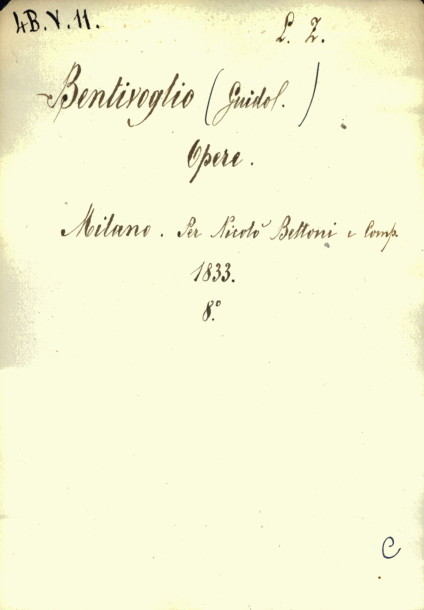 4B.V.11.
L. Z.
Bentivoglio (Guido.)
Opere.
Milano. Per Nicolò Bettoni e Comp.
1833.
8.°
C